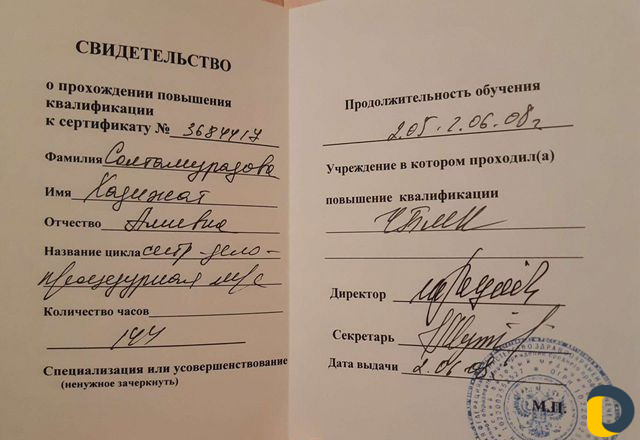 СВИДЕТЕЛЬСТВО
о прохождении повышения
квалификации
к сертификату № 3684417
Фамилия Солтамурадова
Имя Хадижат
Отчество Алиевна
Название цикла сестр-дело-
процедурная м/с
Количество часов
144
Специализация или усовершенствование
(ненужное зачеркнуть)
Продолжительность обучения
2.05. 2.06.08г
Учреждение в котором проходил(а)
повышение квалификации
ЧБМК
Директор
Секретарь
Дата выдачи 2.06.08г.
М.П.